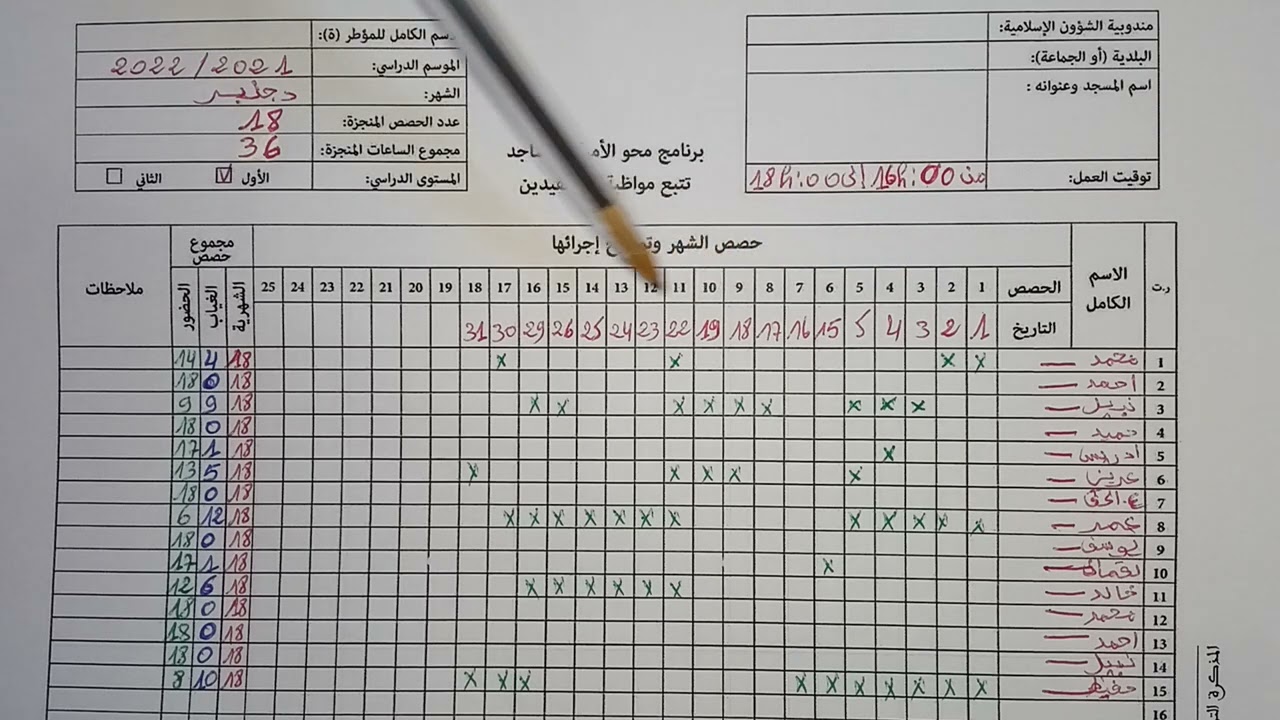 مندوبية الشؤون الإسلامية:
البلدية (أو الجماعة):
اسم المسجد وعنوانه :
توقيت العمل: من 16h:00 إلى 18h:00
الكامل للمؤطر (ة):
الموسم الدراسي: 2022/2021
الشهر: دجنبر
عدد الحصص المنجزة: 18
مجموع الساعات المنجزة: 36
المستوى الدراسي: الأول الثاني
برنامج محو
تتبع
ر.ت الاسم الكامل حصص الشهر إجرائها مجموع حصص ملاحظات
الحصص 1 2 3 4 5 6 7 8 9 10 11 12 13 14 15 16 17 18 19 20 21 22 23 24 25 الشهرية الغياب الحضور
التاريخ 1 2 3 4 5 15 16 17 18 19 22 23 24 25 26 29 30 31
1 محمد x x x x 18 4 14
2 احمد 18 0 18
3 نبيل x x x x x x x x x 18 9 9
4 حميد 18 0 18
5 ادريس x 18 1 17
6 عزيز x x x x x 18 5 13
7 ع.الحق 18 0 18
8 عمر x x x x x x x x x x x x 18 12 6
9 يوسف 18 0 18
10 لقمان x 18 1 17
11 خالد x x x x x x 18 6 12
12 محمد 18 0 18
13 احمد 18 0 18
14 نبيل 18 0 18
15 حفيظ x x x x x x x x x x 18 10 8
16
المذكرة